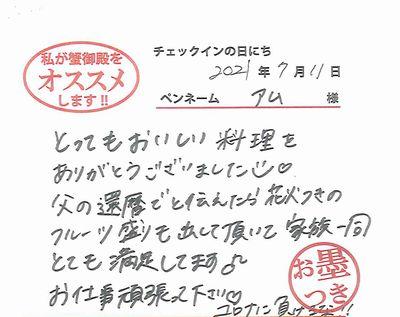 私が蟹御殿を
オススメ
します!!
チェックインの日にち
2021年7月11日
ペンネーム アム 様
とってもおいしい料理を
ありがとうございました♡
父の還暦でと伝えたら花火つきの
フルーツ盛りも出して頂いて家族一同
とても満足してます♪
お仕事頑張って下さい♡
コロナに負けるな!!
お墨つき